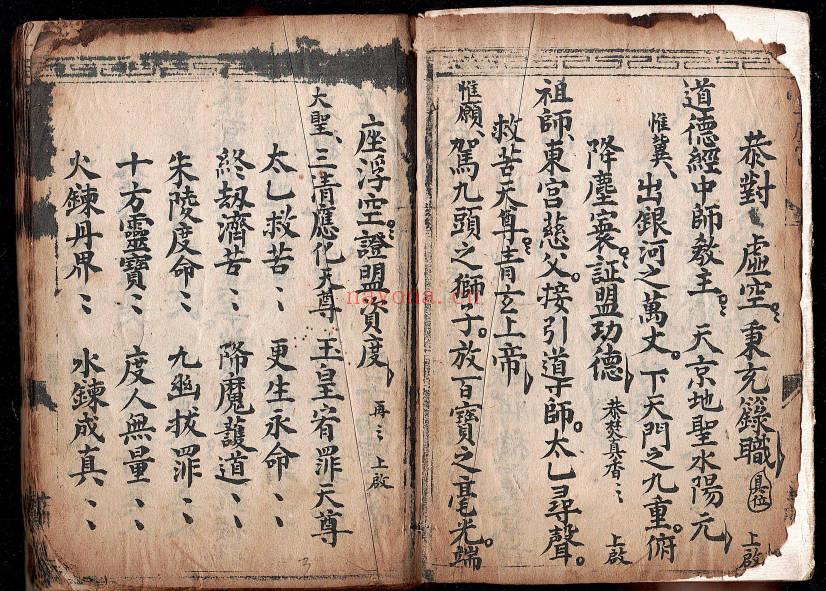 恭對、虛空。秉充籙職 具位 上啟
道德經中師教主。天京地聖水陽元
惟冀、出銀河之萬丈。下天門之九重。俯
降塵寰。証盟功德 恭焚真香〻 上啟
祖師、東宮慈父。接引道師。太乙尋聲。
救苦天尊。青玄上帝
惟願、駕九頭之獅子。放百寶之毫光。端
座浮空。證盟資度 再〻上啟
大聖、三清應化天尊 玉皇宥罪天尊
太乙救苦〻〻 更生永命〻〻
終劫濟苦〻〻 降魔護道〻〻
朱陵度命〻〻 九幽拔罪〻〻
十方靈寶〻〻 度人無量〻〻
火鍊丹界〻〻 水鍊成真〻〻
nayona.cn